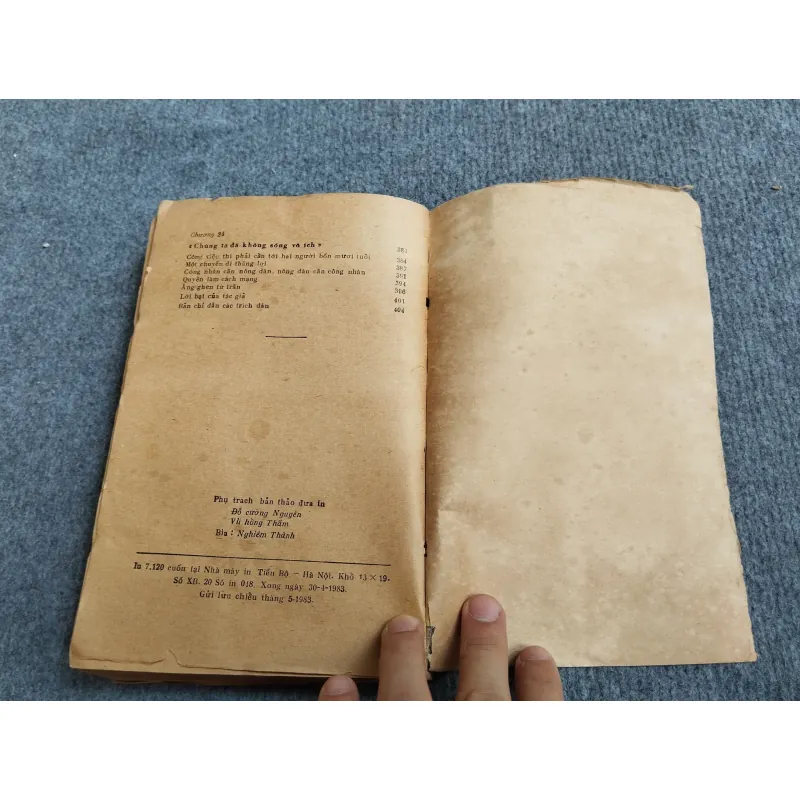 Chương 24
« Chúng ta đã không sống vô ích »
381
Công việc thì phải cần tới hai người bốn mươi tuổi
384
Một chuyến đi thắng lợi
387
Công nhân cần nông dân, nông dân cần công nhân
391
Quyền làm cách mạng
394
Ăng-ghen từ trần
396
Lời bạt của tác giả
401
Bản chỉ dẫn các trích dẫn
404
Phụ trách bản thảo đưa in
Đỗ cường Nguyên
Vũ hồng Thắm
Bìa : Nghiêm Thành
In 7.120 cuốn tại Nhà máy in Tiến Bộ – Hà Nội. Khổ 13 × 19.
Số XB. 20 Số in 018. Xong ngày 30-4-1983.
Gửi lưu chiểu tháng 5-1983.